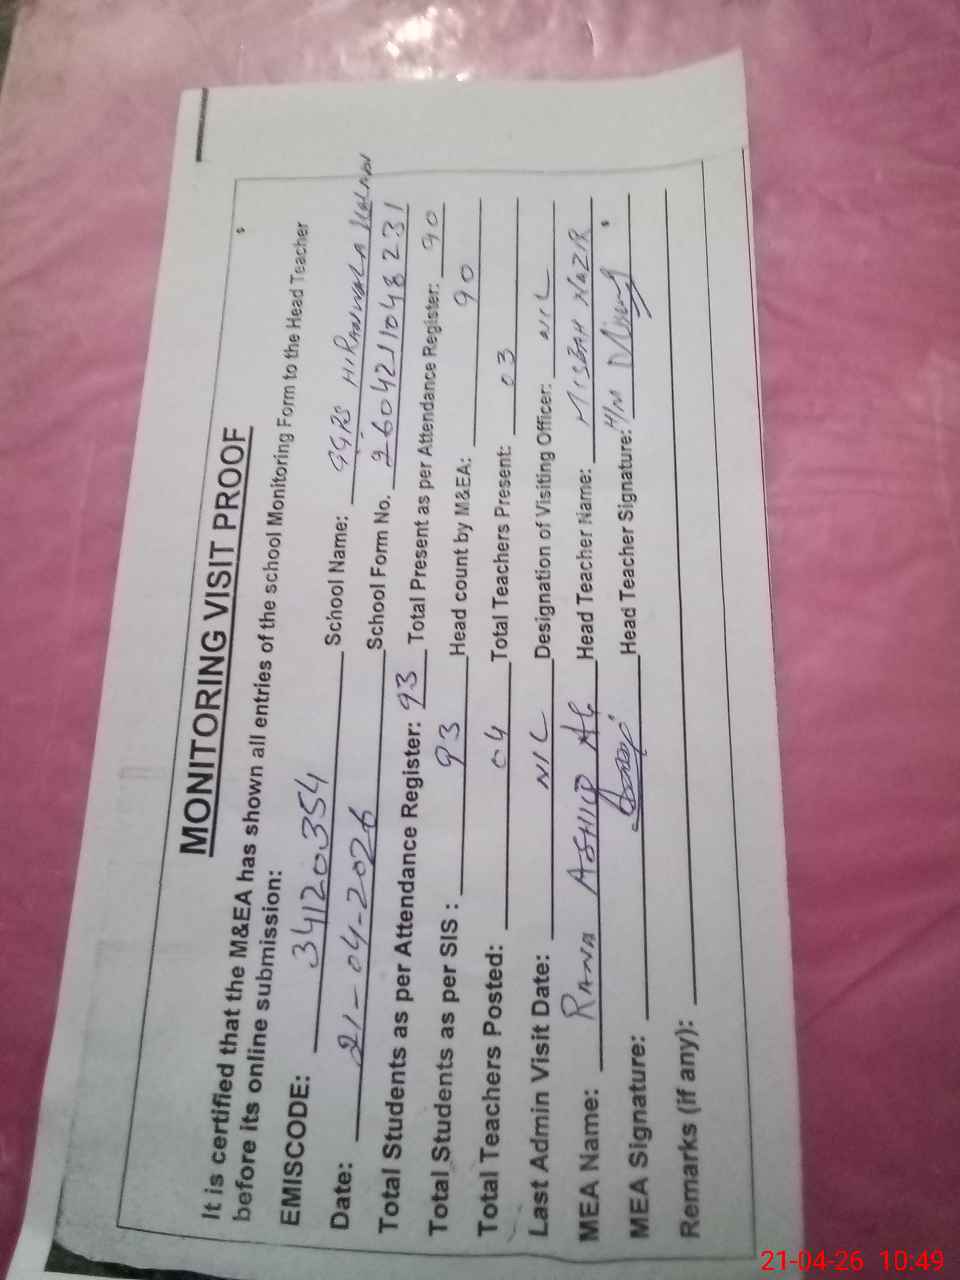 MONITORING VISIT PROOF
It is certified that the M&EA has shown all entries of the school Monitoring Form to the Head Teacher
before its online submission:
EMISCODE: 34120354 School Name: GGPS HIRANWALA KALAN
Date: 21-04-2026 School Form No. 2604211048231
Total Students as per Attendance Register: 93 Total Present as per Attendance Register: 90
Total Students as per SIS: 93 Head count by M&EA: 90
Total Teachers Posted: 04 Total Teachers Present: 03
Last Admin Visit Date: NIL Designation of Visiting Officer: NIL
MEA Name: RANA ASHIQ Ali Head Teacher Name: MISBAH NAZIR
MEA Signature: Head Teacher Signature: H/M
Remarks (if any):
21-04-26 10:49